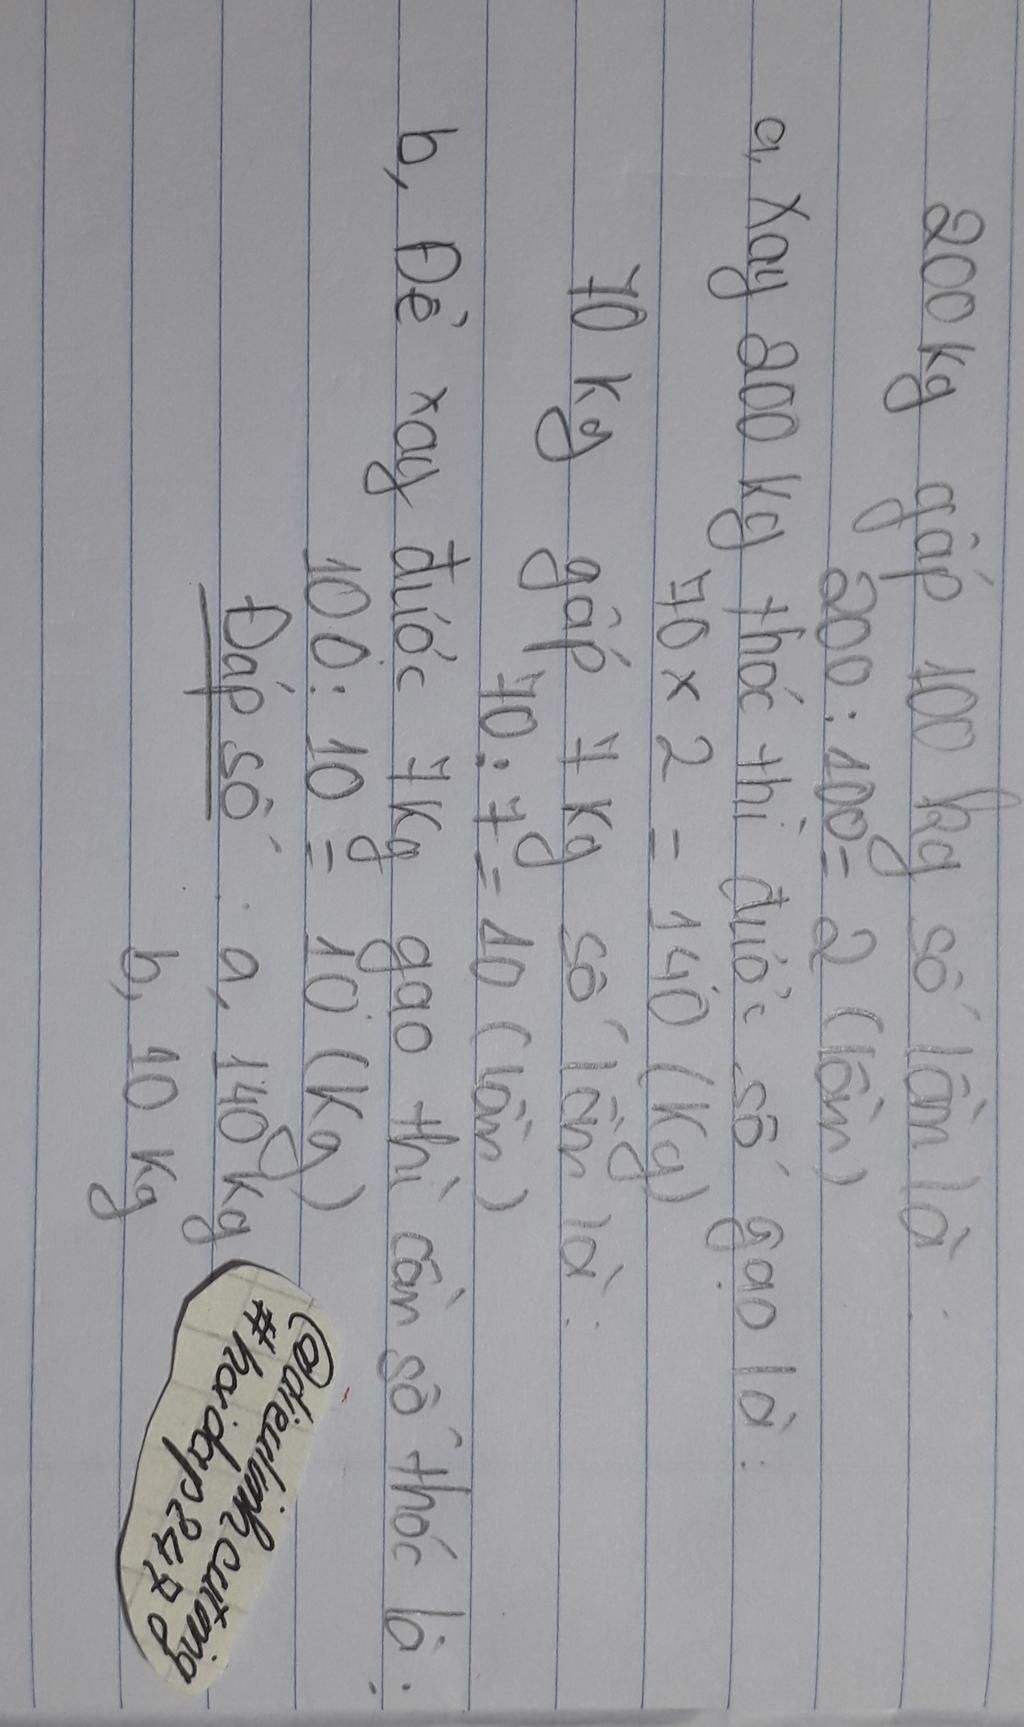 200 kg gấp 100 kg số lần là :
200 : 100 = 2 (lần)
a, Xay 200 kg thóc thì đước số gạo là :
70 x 2 = 140 (kg)
70 kg gấp 7 kg số lần là :
70 : 7 = 10 (lần)
b, Để xay đước 7kg gao thì cần số thóc là :
100 : 10 = 10 (kg)
Đáp số : a, 140 kg
b, 10 kg
@dieulinhcuting
#hoidap247